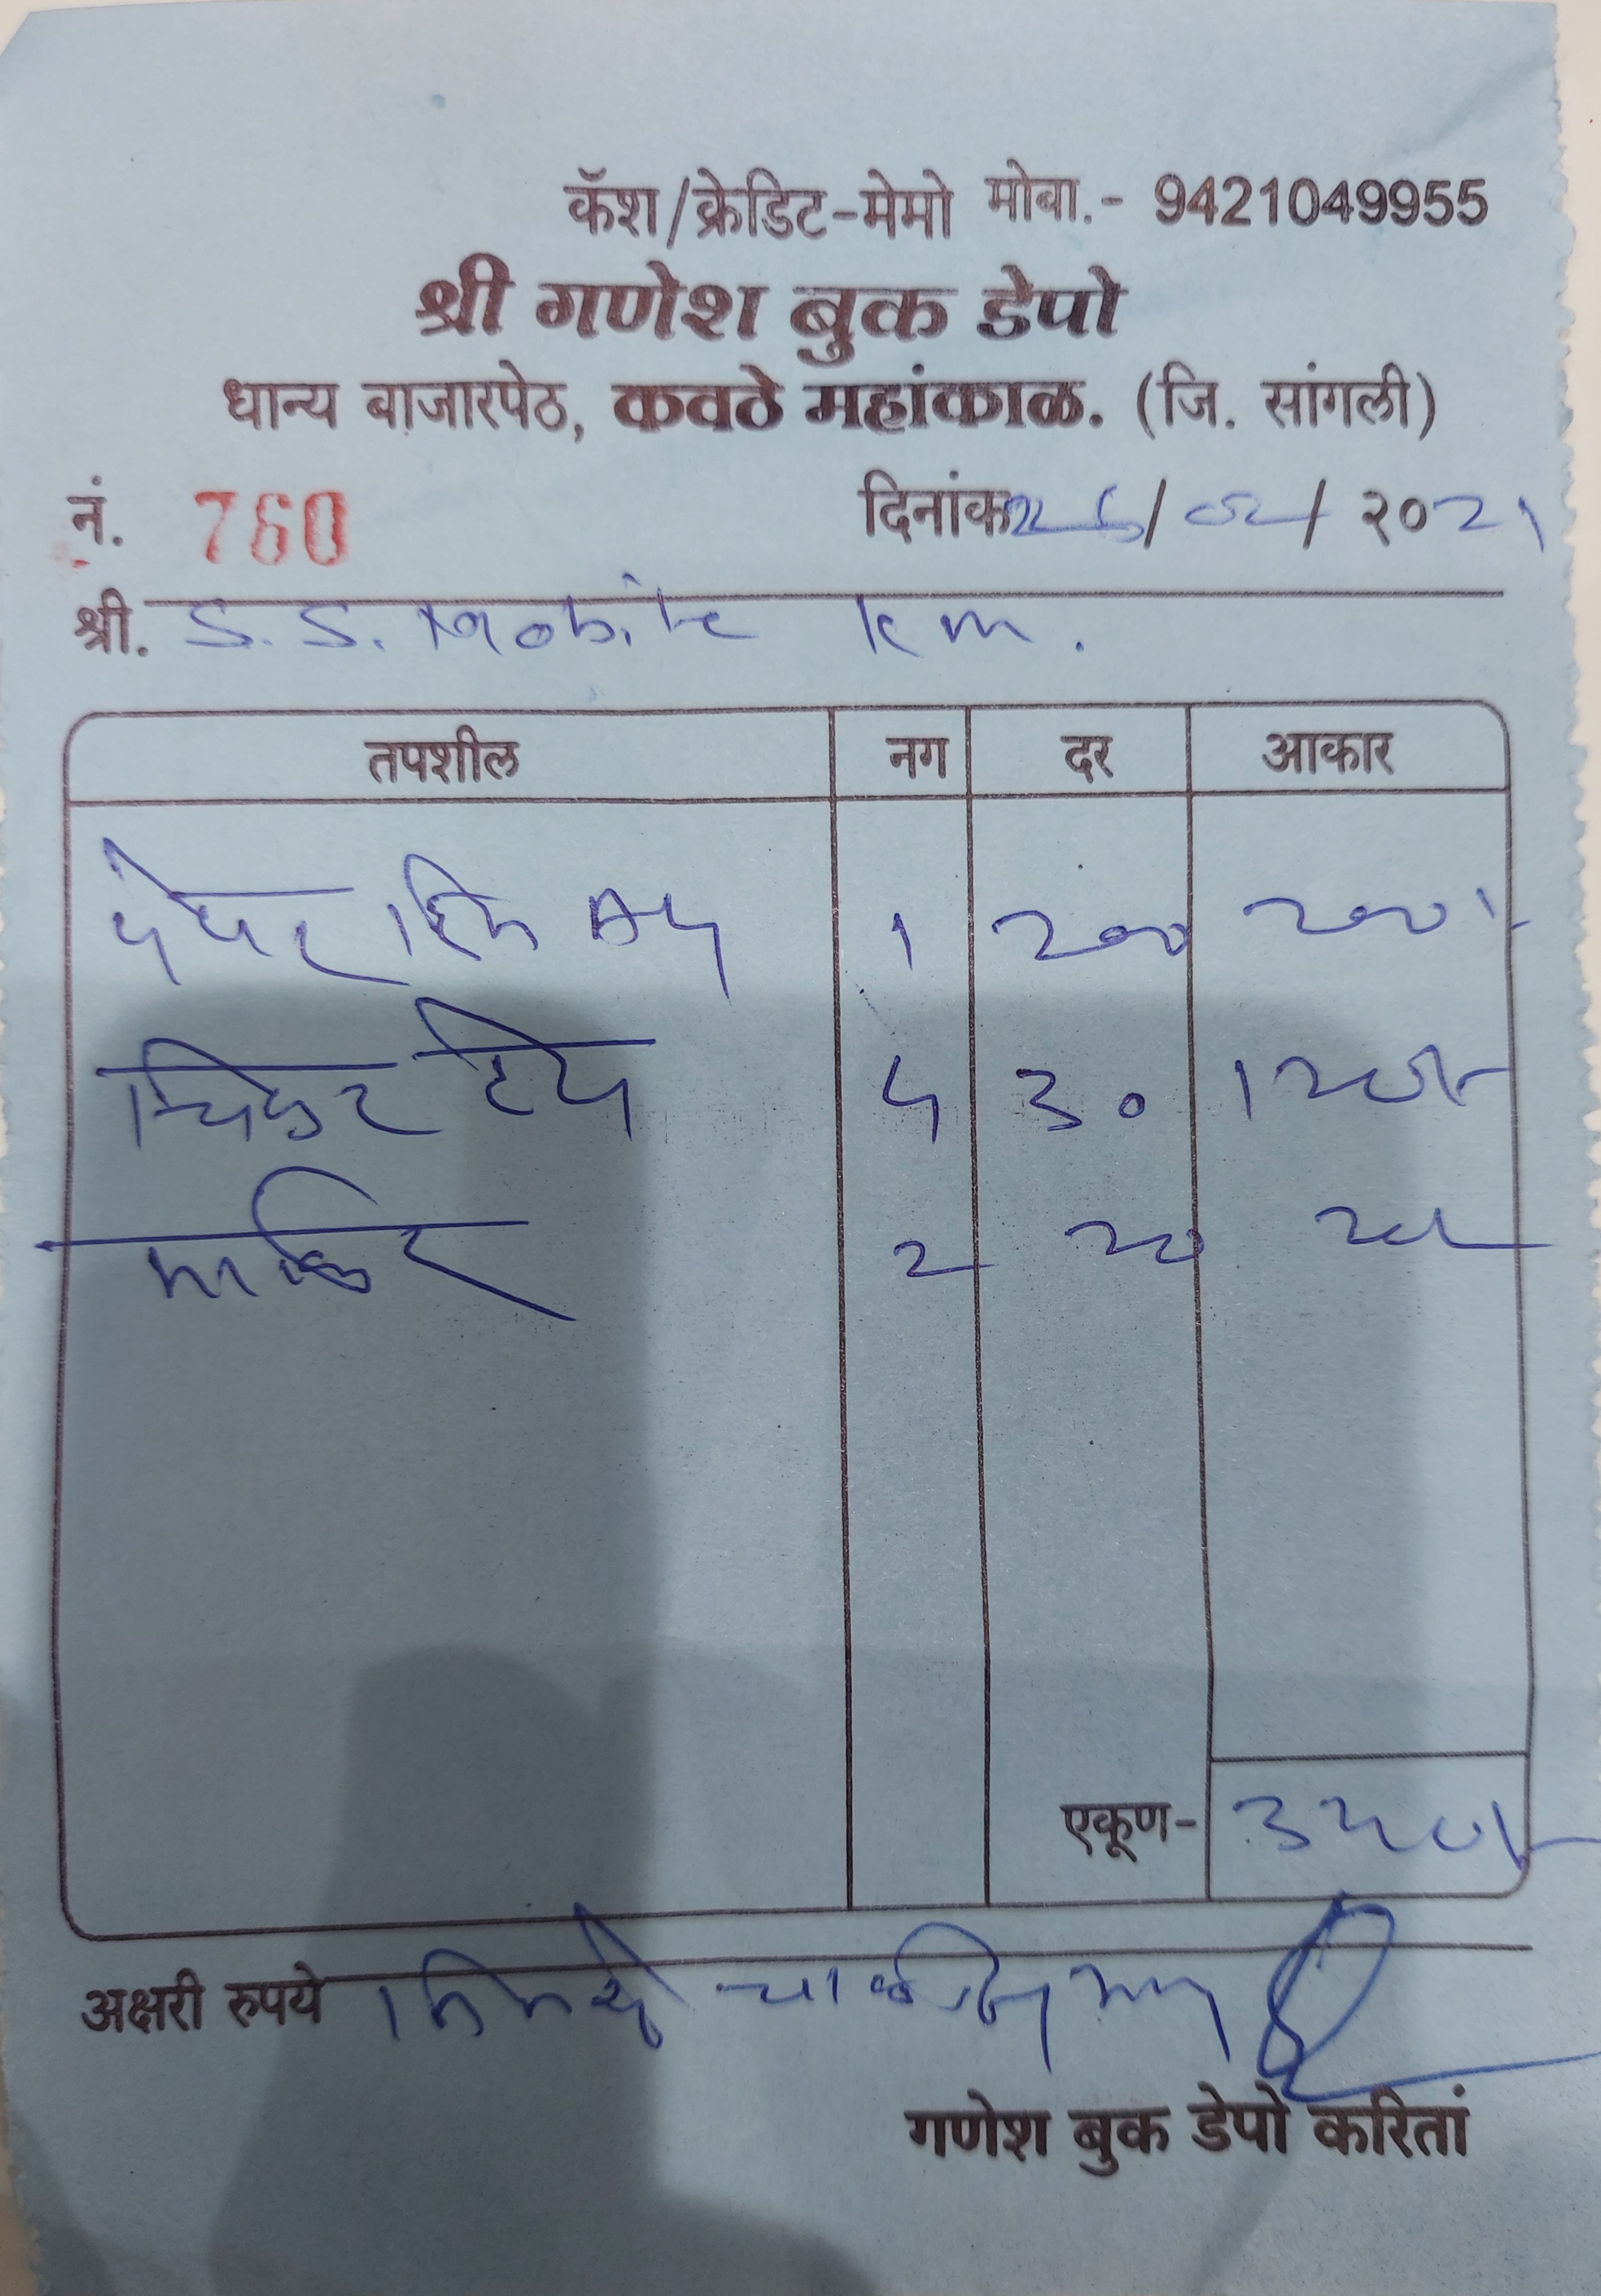 कॅश/क्रेडिट-मेमो मोबा.- 9421049955
श्री गणेश बुक डेपो
धान्य बाजारपेठ, कवठे महांकाळ. (जि. सांगली)
नं. 760 दिनांक 26/02/२०21
श्री. S.S. Mobile km.
तपशील नग दर आकार
पेपर रिम A4 1 200 200/-
टेप 4 30 120/-
मार्कर 2 20
एकूण- 340/-
अक्षरी रुपये तिनशे चाळीस
गणेश बुक डेपो करितां